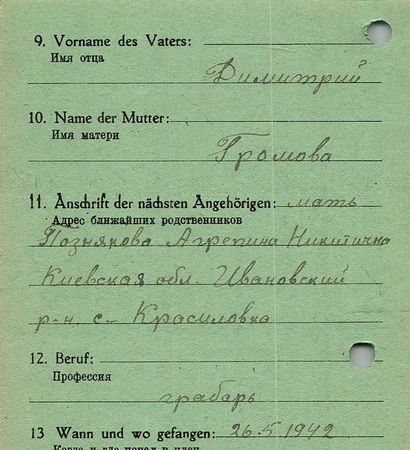 9. Vorname des Vaters:
Имя отца
Димитрий
10. Name der Mutter:
Имя матери
Громова
11. Anschrift der nächsten Angehörigen: мать
Адрес ближайших родственников
Познякова Агрепина Никитична
Киевская обл. Ивановский
р-н. с- Красиловка
12. Beruf:
Профессия
грабарь
13 Wann und wo gefangen: 26.5 1942
Когда и где попал в плен